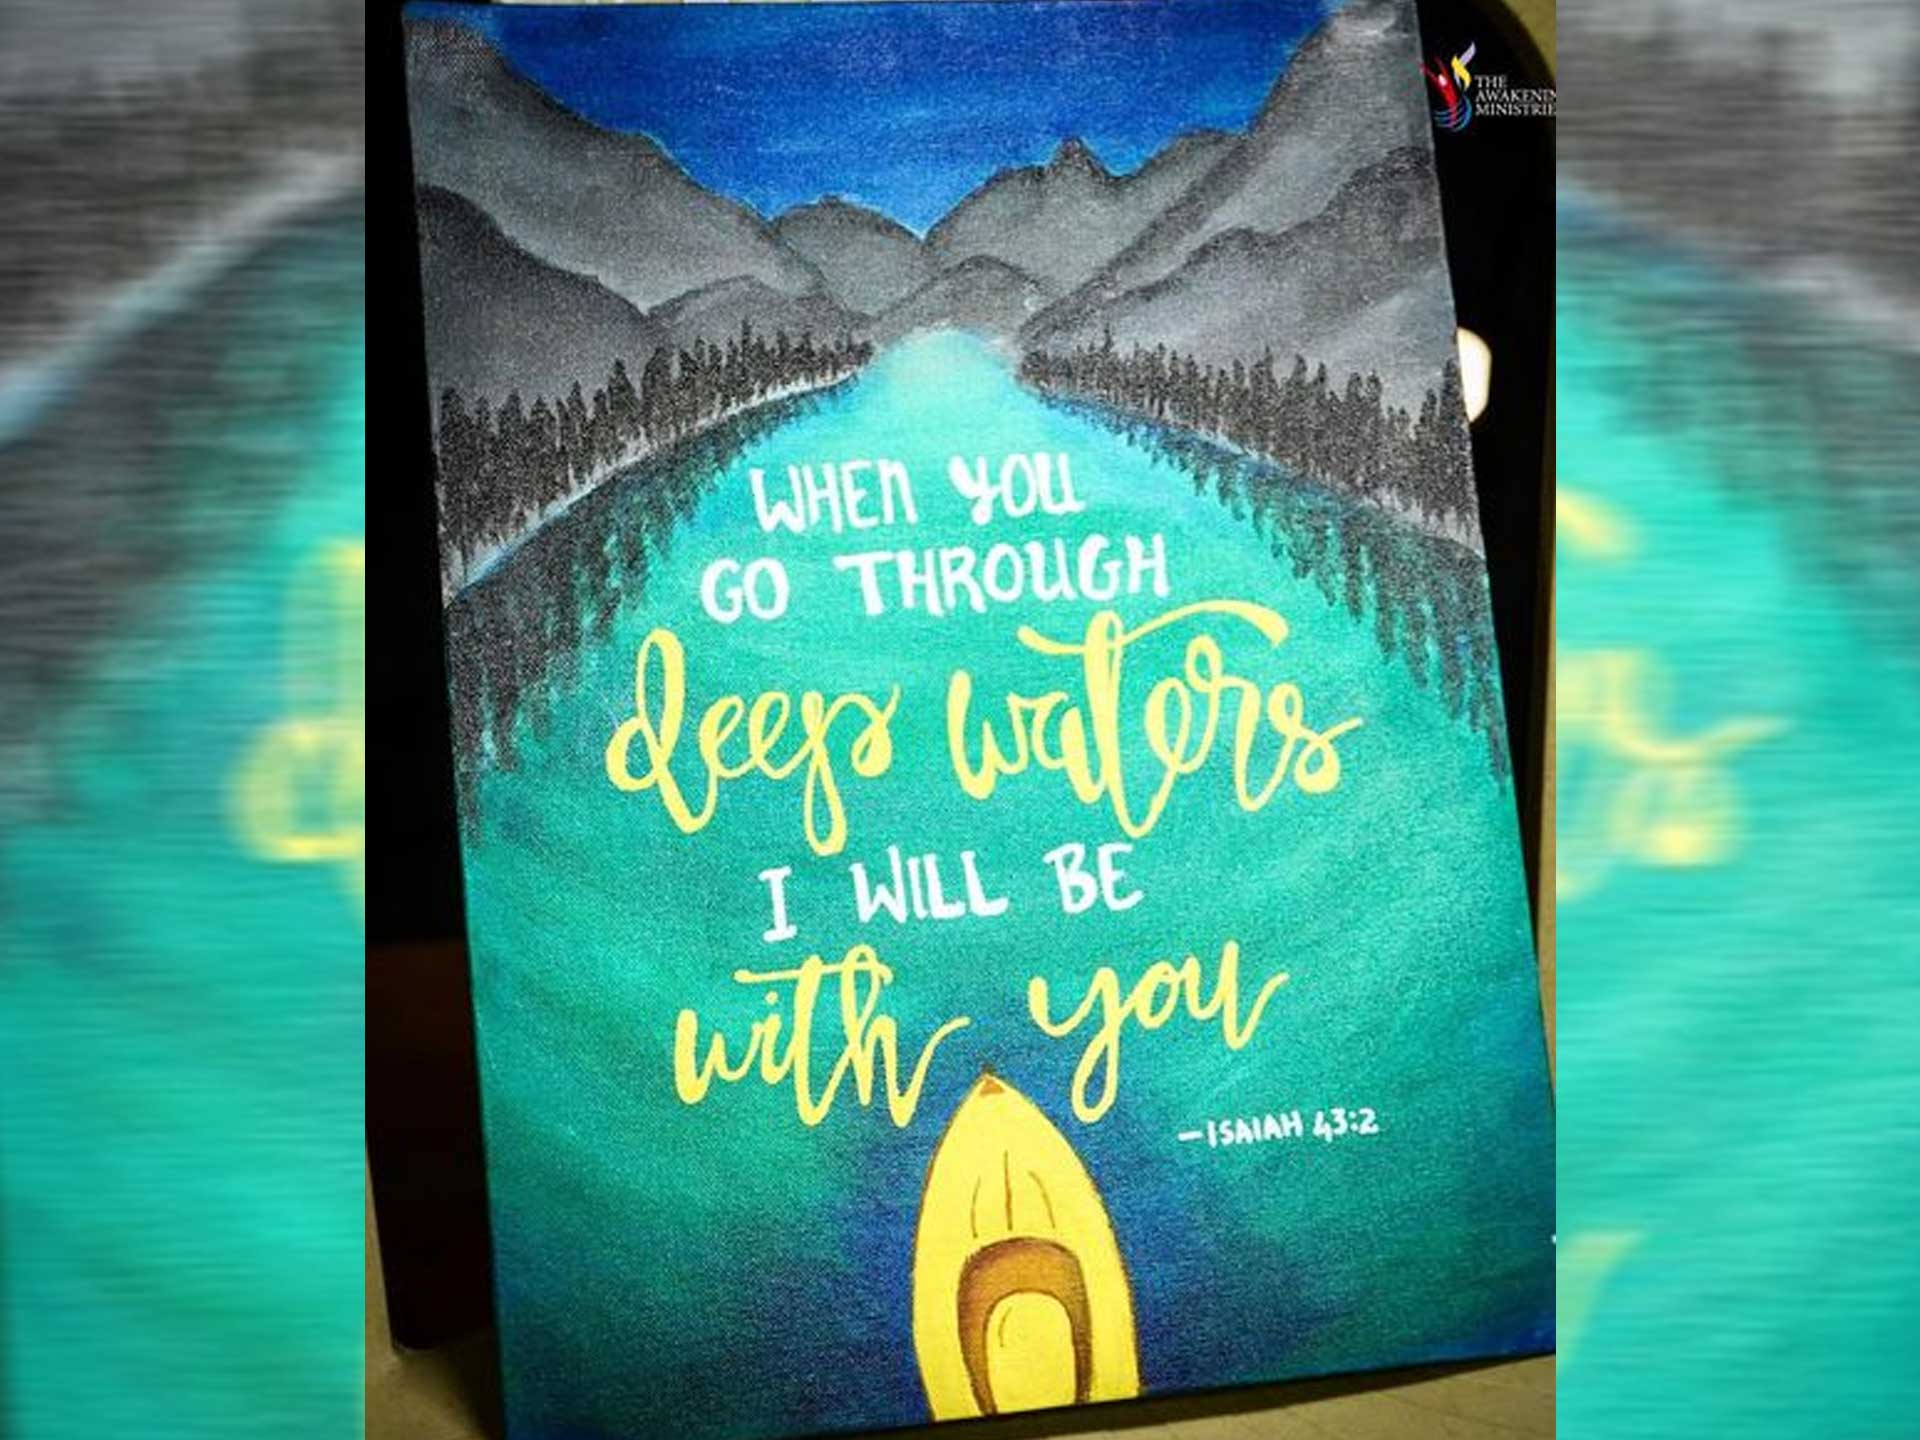 THE
AWAKENIN
MINISTRIE
WHEN YOU
GO THROUGH
deep waters
I WILL BE
with you
—ISAIAH 43:2